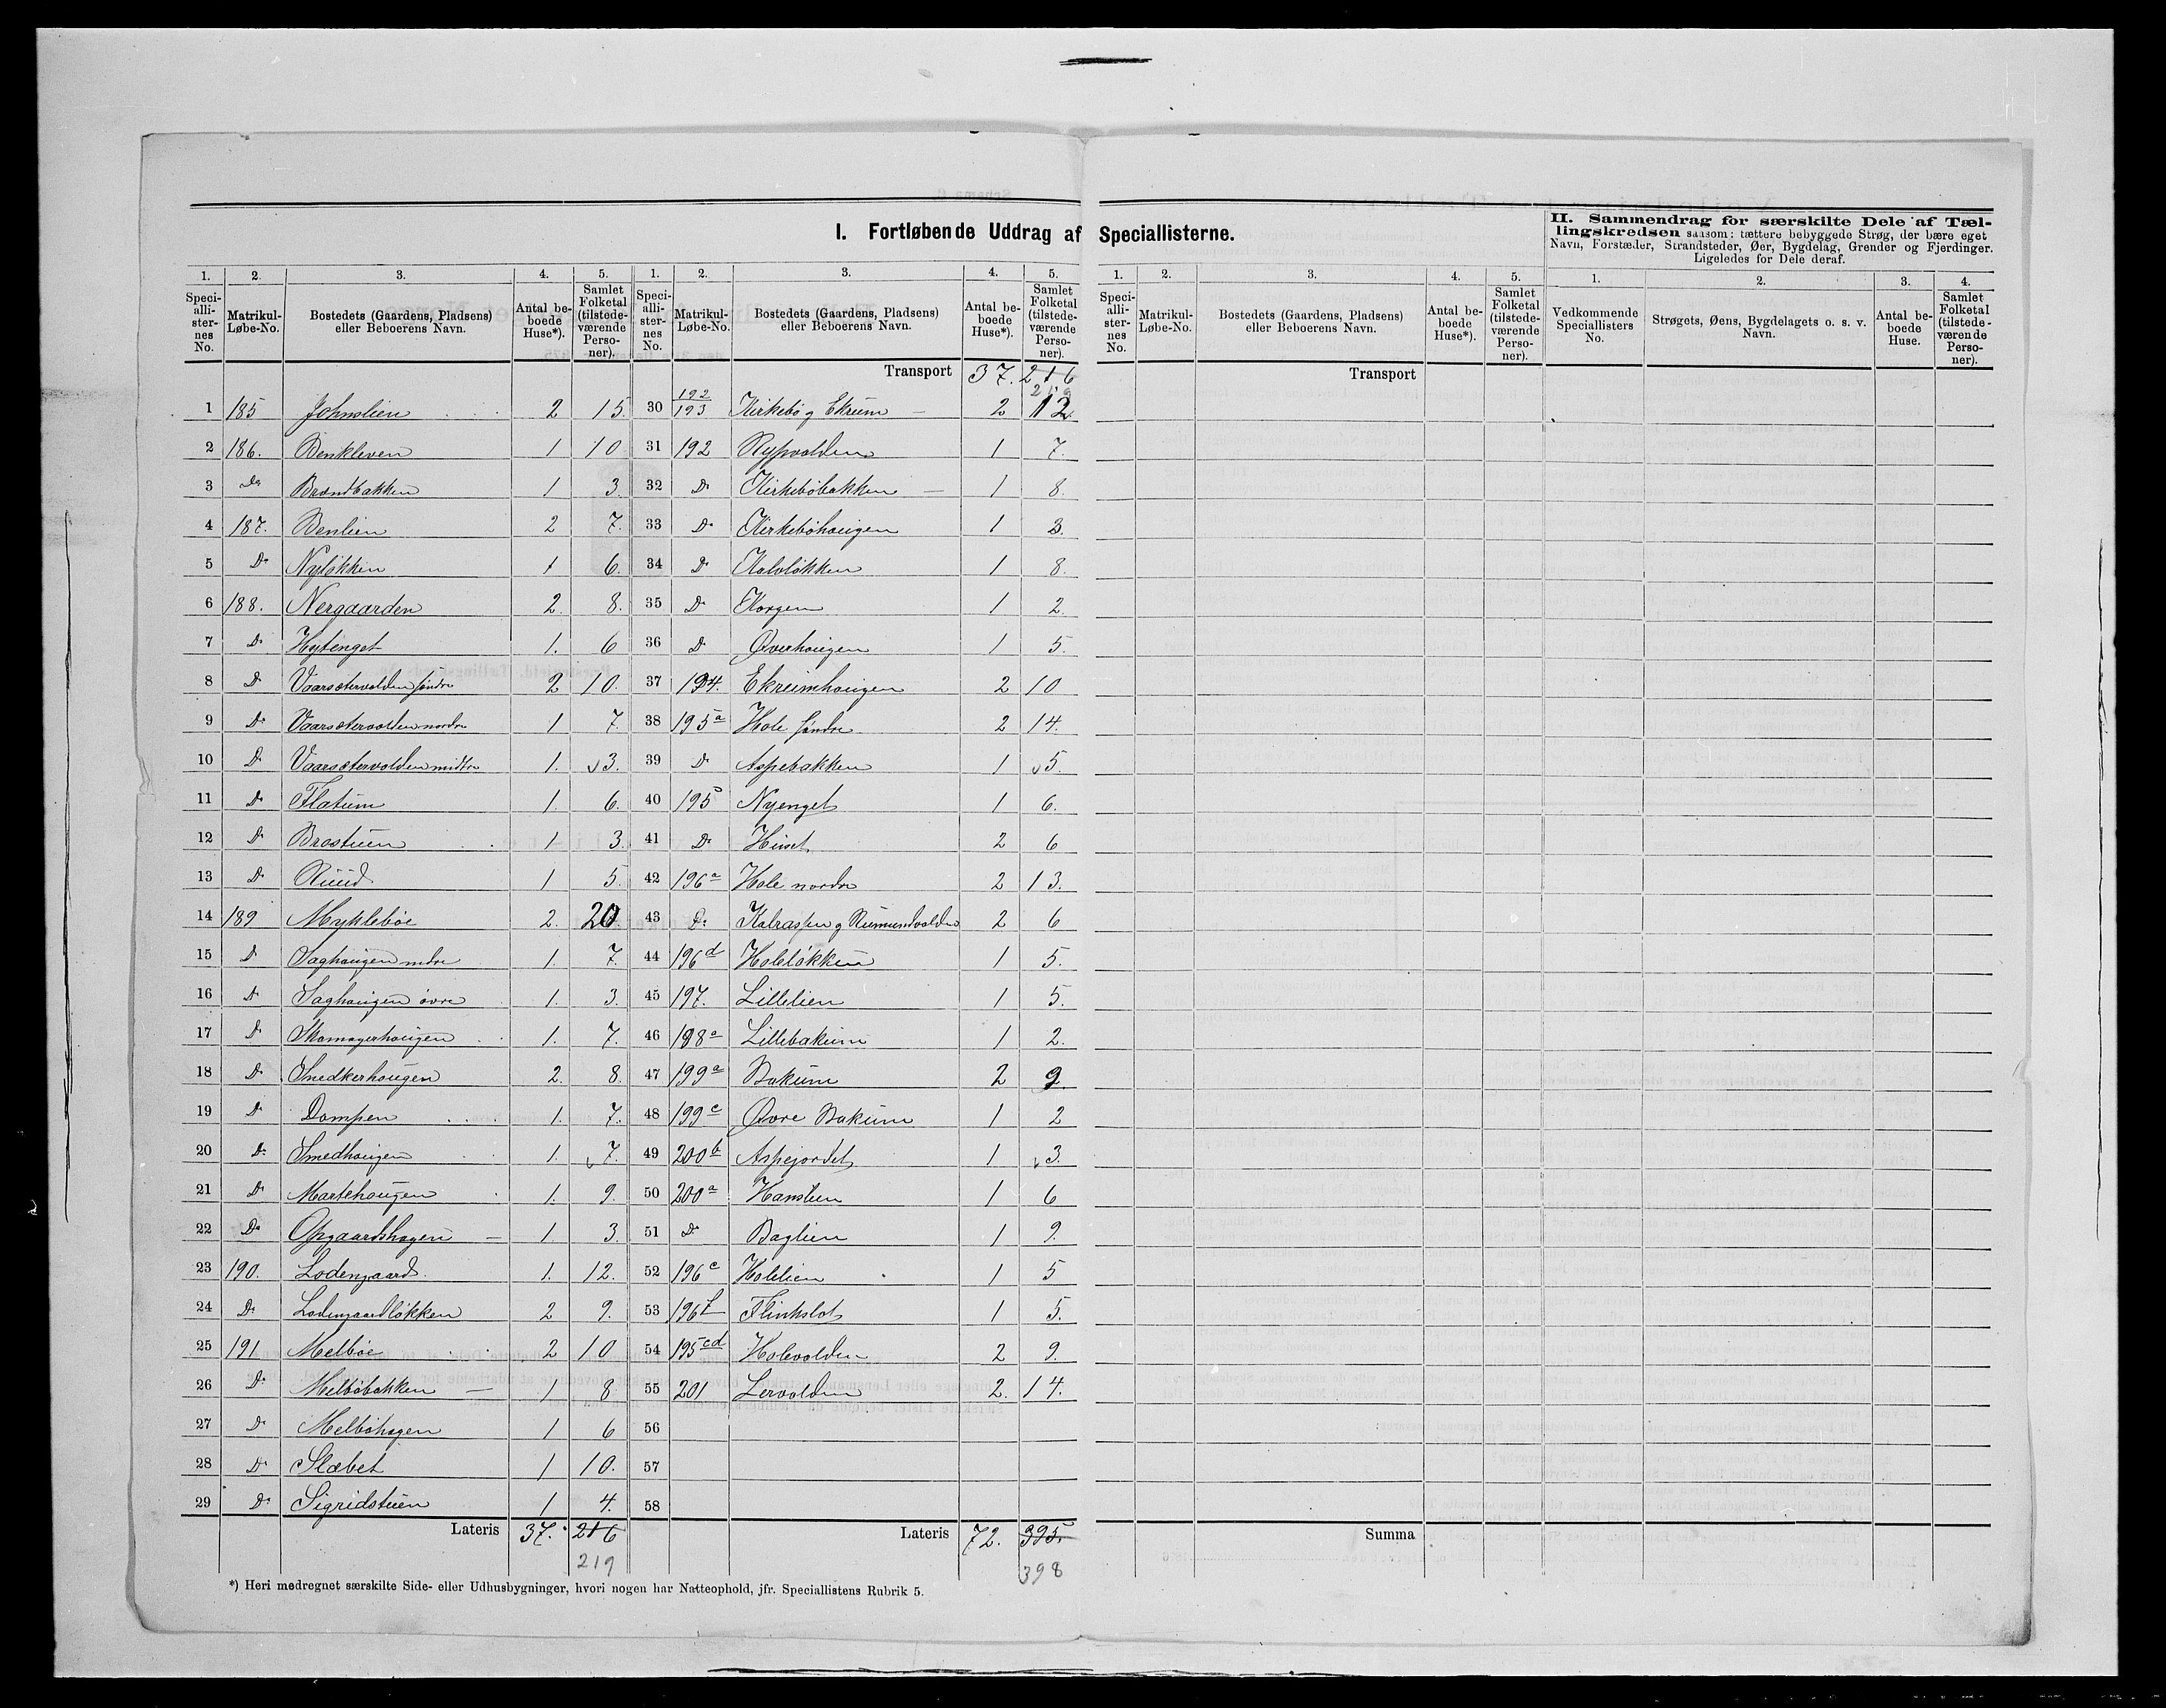 I. Fortløbende Uddrag af Speciallisterne.
II. Sammendrag for særskilte Dele af Tæl-
lingskredsen saasom: tættere bebyggede Strøg, der bære eget
Navn, Forstæder, Strandsteder, Øer, Bygdelag, Grender og Fjerdinger.
Ligeledes for Dele deraf.
1. 2. 3. 4. 5. 1. 2. 3. 4. 5. 1. 2. 3. 4. 5. 1. 2. 3. 4.
Speci-alli-ster-nes No. Matrikul-Løbe-No. Bostedets (Gaardens, Pladsens) eller Beboerens Navn. Antal be-boede Huse*). Samlet Folketal (tilstede-værende Perso-ner).
Speci-alli-ster-nes No. Matrikul-Løbe-No. Bostedets (Gaardens, Pladsens) eller Beboerens Navn. Antal be-boede Huse*). Samlet Folketal (tilstede-værende Perso-ner).
Speci-alli-ster-nes No. Matrikul-Løbe-No. Bostedets (Gaardens, Pladsens) eller Beboerens Navn. Antal be-boede Huse*). Samlet Folketal (tilstede-værende Perso-ner).
Vedkommende Speciallisters No. Strøgets, Øens, Bygdelagets o. s. v. Navn. Antal be-boede Huse. Samlet Folketal (tilstede-værende Perso-ner).
Transport 37. 216
Transport
1 185 Johnslien 2 15.
2 186. Benkleven 1 10
3 Do Brændbakken 1 3.
4 187. Benlien 2 7.
5 Do Nyløkken 1 6.
6 188. Nergaarden 2. 8.
7 Do Hytenget 1. 6
8 Do Vaarsætervolden søndre 2 10.
9 Do Vaarsætervolden nordre 1 7.
10 Do Vaarsætervolden midtre 1. 3.
11 Do Flatum 1. 6.
12 Do Brostuen 1 3.
13 Do Ruud 1 5.
14 189 Myklebøe 2. 20.
15 Do Saghougen nedre 1. 7.
16 Do Saghougen øvre 1. 3.
17 Do Skomagerhougen 1. 7.
18 Do Snedkerhougen 2. 8.
19 Do Dampen 1. 7.
20 Do Smedhougen 1. 7.
21 Do Martehougen 1. 9.
22 Do Opgaardshagen 1. 3.
23 190. Lodengaard 1. 12.
24 Do Lodengaardløkken 2 9.
25 191 Melbøe 2 10
26 Do Melbøbakken 1 8
27 Do Melbøhagen 1 6
28 Do Slæbet 1 10.
29 Do Sigridstuen 1 4.
Lateris 37. 216
219
30 192/193 Kirkebø og Ekrum 2 12.
31 192 Rypvolden 1 7.
32 Do Kirkebøbakken 1 8.
33 Do Kirkebøhougen 1
34 Do Kalvløkken 1 8.
35 Do Korgen 1 2.
36 Do Øverhougen 1 5.
37 194. Ekreimhougen 2 10
38 195a Hole søndre 2 14.
39 Do Aspebakken 1 5.
40 195 Nyenget 1 6.
41 Do Huset 2 6
42 196a Hole nordre 2 13.
43 Do 2 6
44 196d Holeløkken 1 5.
45 197. Lillelien 1 5.
46 198a Lillebakum 1 2.
47 199a Bakum 2 9.
48 199c Øvre Bakum 1 2
49 200b Aspejordet 1 3.
50 200a Hanslien 1 6
51 Do Baglien 1 9.
52 196c Holelien 1 5
53 196f Flinkslot 1 5.
54 195cd Holevolden 2 9.
55 201 Lervolden 2. 14.
56
57
58
Lateris 72. 395.
398
Summa
*) Heri medregnet særskilte Side- eller Udhusbygninger, hvori nogen har Natteophold, jfr. Speciallistens Rubrik 5.